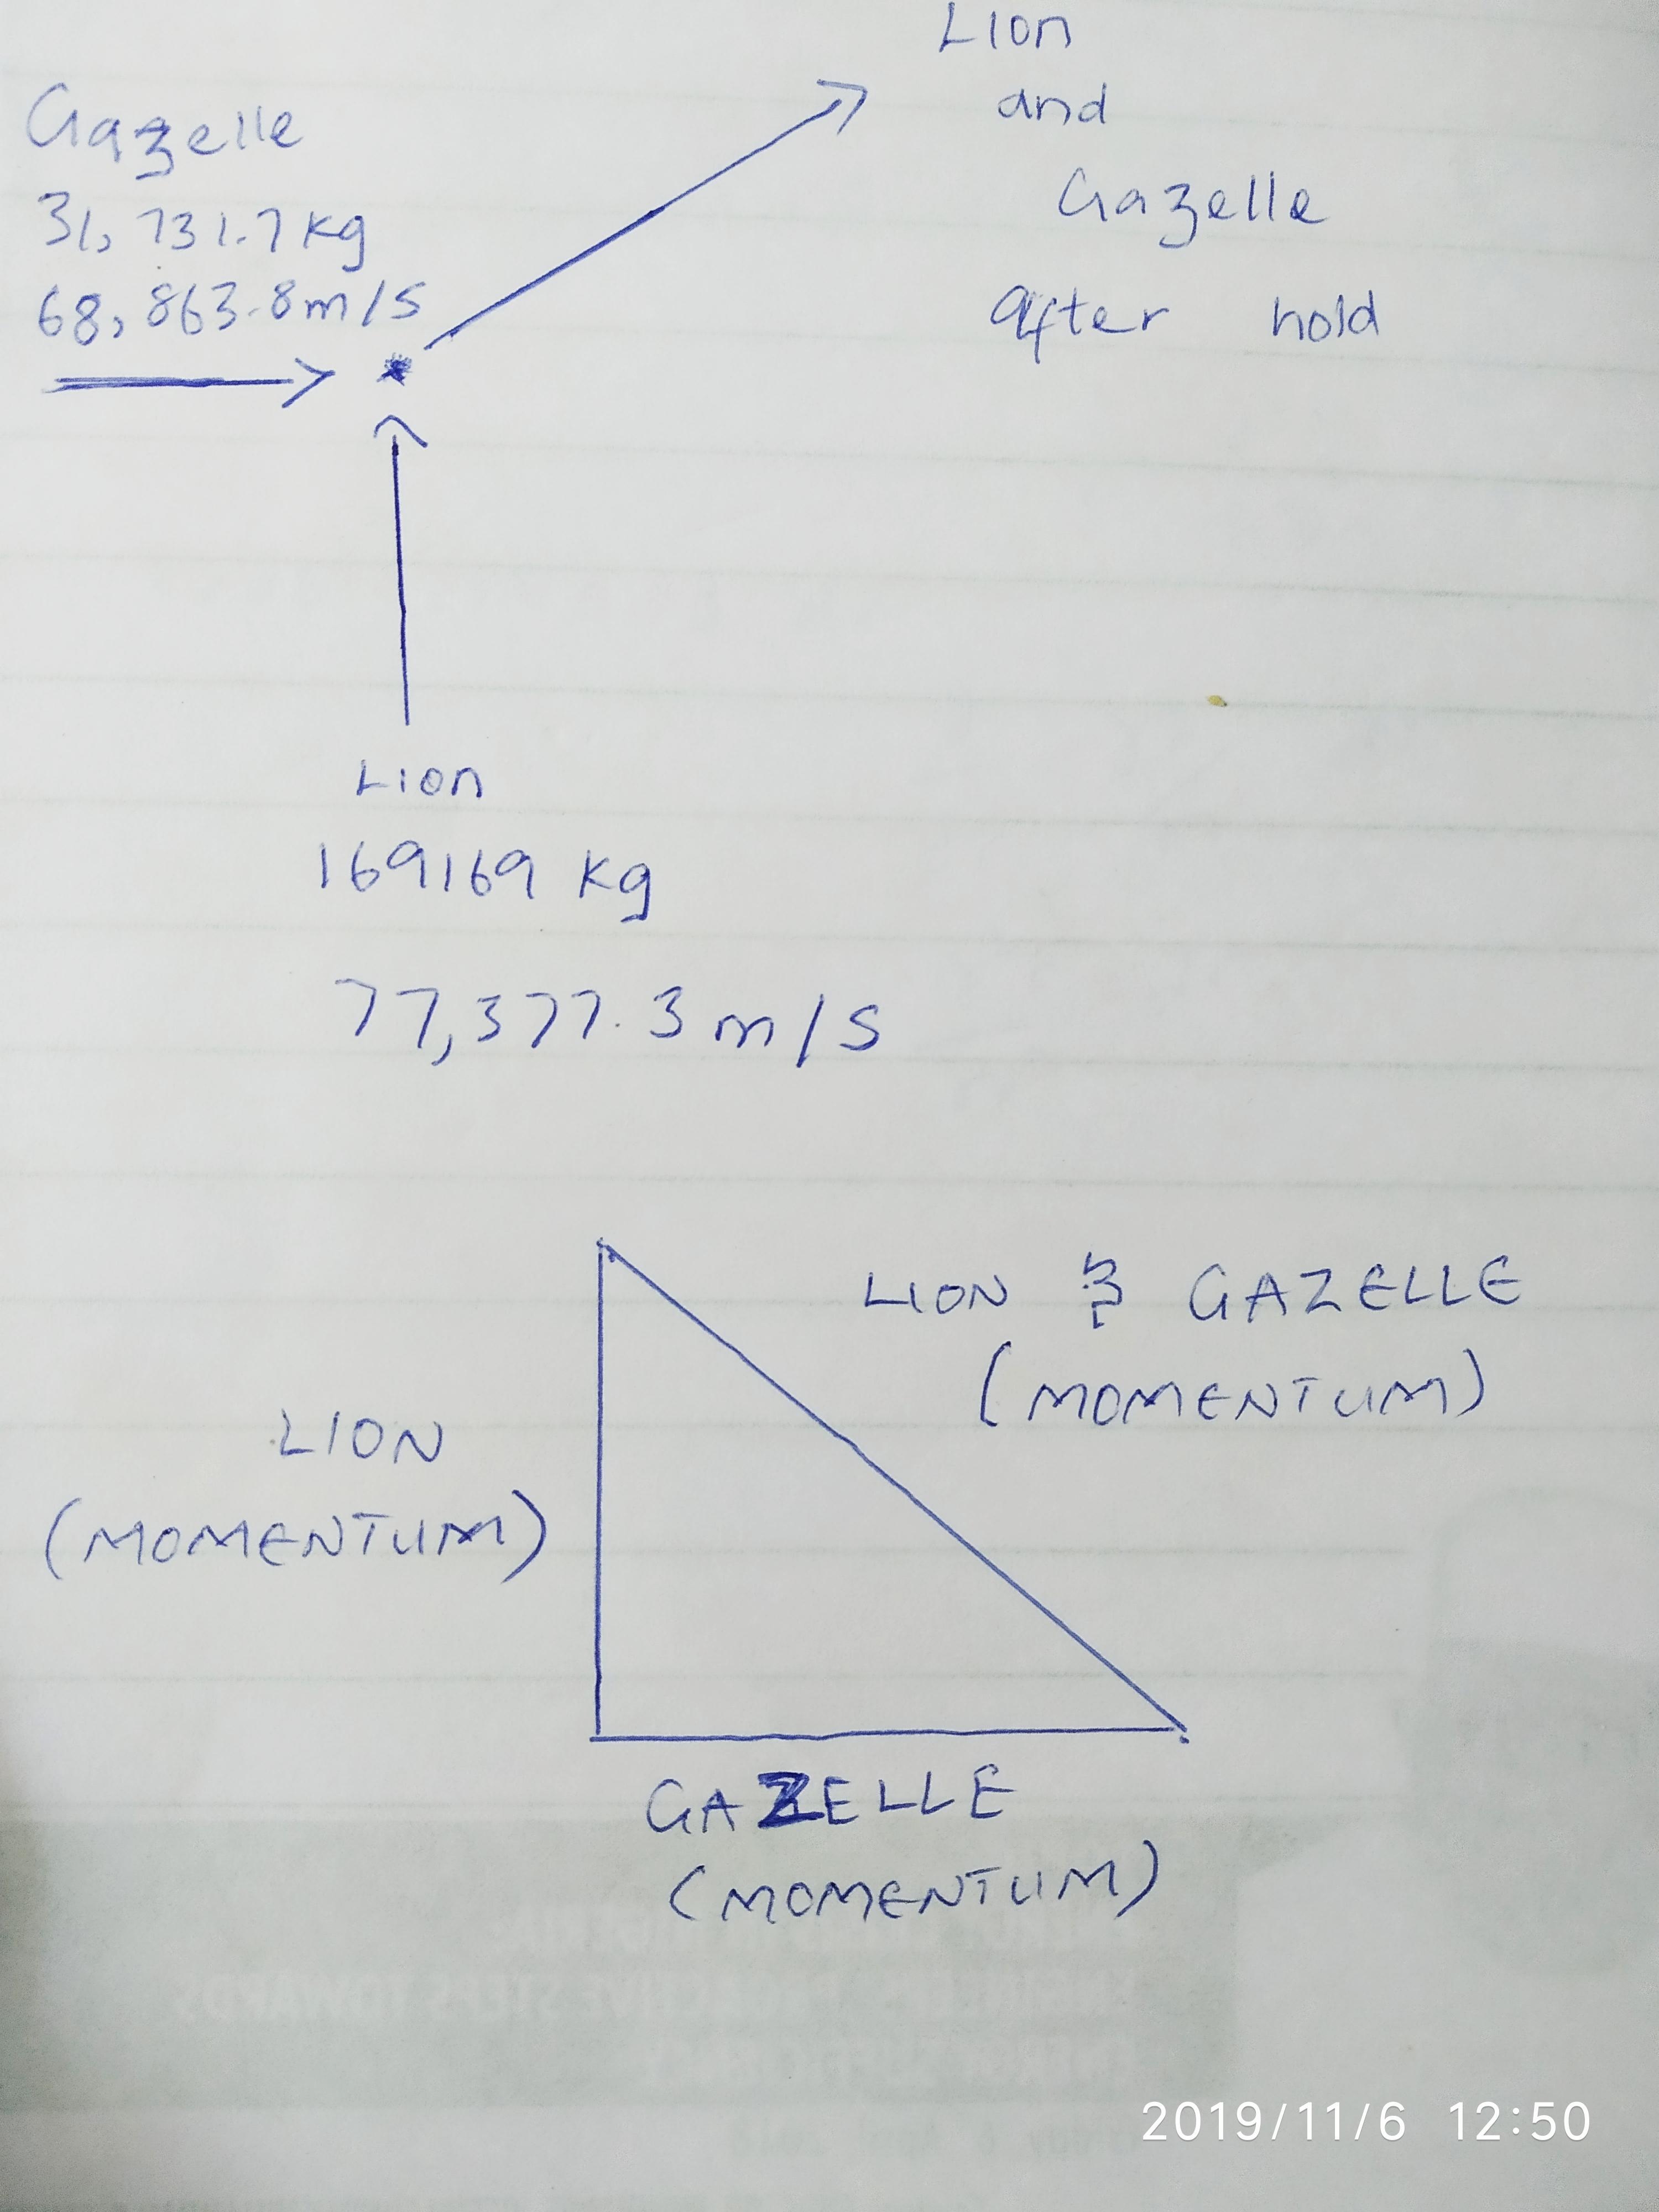 Lion
and
Gazelle
after hold
Gazelle
31,731.7 kg
68,863.8 m/s
Lion
169169 kg
77,377.3 m/s
LION & GAZELLE
(MOMENTUM)
LION
(MOMENTUM)
GAZELLE
(MOMENTUM)
2019/11/6 12:50